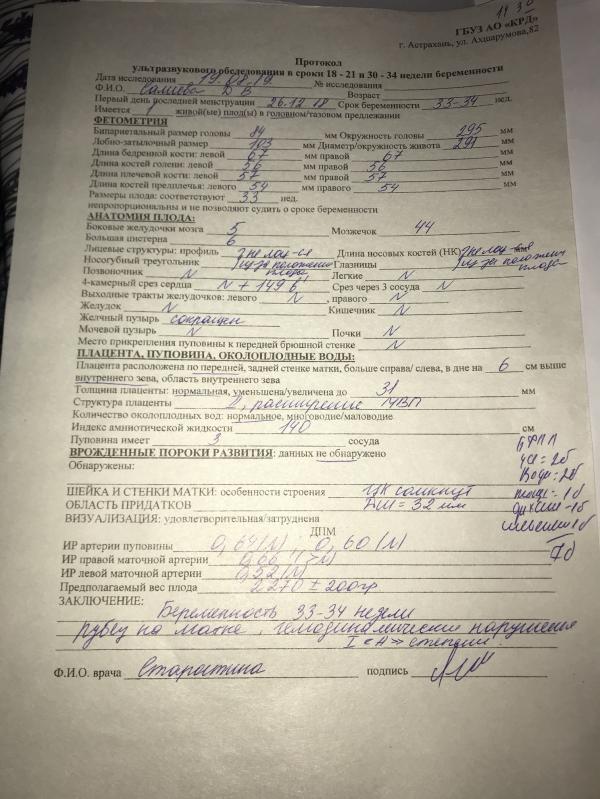 11 30
ГБУЗ АО «КРД»
г. Астрахань, ул. Ахшарумова,82
Протокол
ультразвукового обследования в сроки 18 - 21 и 30 - 34 недели беременности
Дата исследования 19.08.19 № исследования
Ф.И.О. Д В Возраст
Первый день последней менструации 26.12 18 Срок беременности 33-34 нед.
Имеется 1 живой(ые) плод(ы) в головном/тазовом предлежании
ФЕТОМЕТРИЯ
Бипариетальный размер головы 84 мм Окружность головы 295 мм
Лобно-затылочный размер 103 мм Диаметр/окружность живота 291 мм
Длина бедренной кости: левой 67 мм правой 67 мм
Длина костей голени: левой 56 мм правой 56 мм
Длина плечевой кости: левой 57 мм правой 57 мм
Длина костей предплечья: левого 54 мм правого 54 мм
Размеры плода: соответствуют 33 нед.
непропорциональны и не позволяют судить о сроке беременности
АНАТОМИЯ ПЛОДА:
Боковые желудочки мозга 5 Мозжечок 44
Большая цистерна 6
Лицевые структуры: профиль Длина носовых костей (НК) мм
Носогубный треугольник из-за положения плода Глазницы из-за положения плода
Позвоночник N Легкие N
4-камерный срез сердца N + 149 Срез через 3 сосуда N
Выходные тракты желудочков: левого N , правого N
Желудок N Кишечник N
Желчный пузырь сокращен
Мочевой пузырь N Почки N
Место прикрепления пуповины к передней брюшной стенке N
ПЛАЦЕНТА, ПУПОВИНА, ОКОЛОПЛОДНЫЕ ВОДЫ:
Плацента расположена по передней, задней стенке матки, больше справа/ слева, в дне на 6 см выше
внутреннего зева, область внутреннего зева
Толщина плаценты: нормальная, уменьшена/увеличена до 31 мм
Структура плаценты 2, расширение МВП
Количество околоплодных вод: нормальное, многоводие/маловодие
Индекс амниотической жидкости 140 см
Пуповина имеет 3 сосуда
БФПП
ЧСС = 2б
ВРОЖДЕННЫЕ ПОРОКИ РАЗВИТИЯ: данных не обнаружено
Обнаружены:
воды = 2б
ШЕЙКА И СТЕНКИ МАТКИ: особенности строения ЦК сомкнут
тонус - 1б
ОБЛАСТЬ ПРИДАТКОВ ДШ = 32 мм
ВИЗУАЛИЗАЦИЯ: удовлетворительная/затруднена
7б
ДПМ
ИР артерии пуповины 0,64(N) 0,60(N)
ИР правой маточной артерии
ИР левой маточной артерии 0,52(N)
Предполагаемый вес плода 2270 ± 200гр
ЗАКЛЮЧЕНИЕ: Беременность 33-34 недели
рубец на матке, гемодинамические нарушения
I «А» степени.
Ф.И.О. врача Старостина подпись